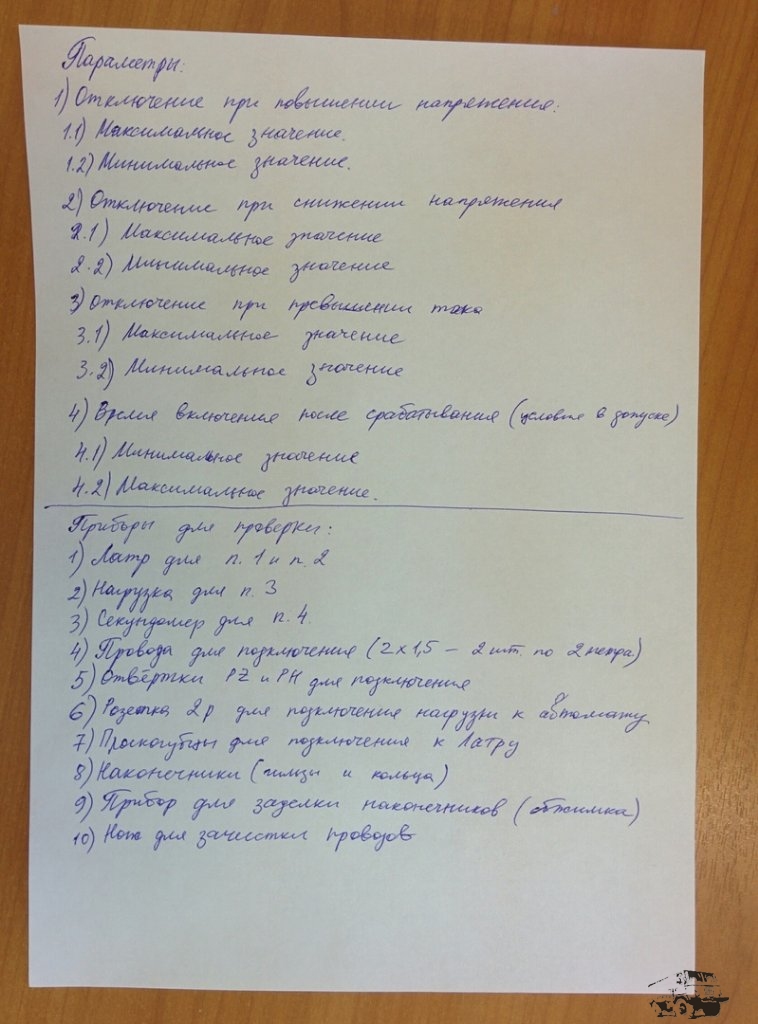 Параметры:
1) Отключение при повышении напряжения:
1.1) Максимальное значение.
1.2) Минимальное значение.
2) Отключение при снижении напряжения
2.1) Максимальное значение
2.2) Минимальное значение
3) Отключение при превышении тока
3.1) Максимальное значение
3.2) Минимальное значение
4) Время включения после срабатывания (условие в допуске)
4.1) Минимальное значение
4.2) Максимальное значение.
Приборы для проверки:
1) Латр для п. 1 и п. 2
2) Нагрузка для п. 3
3) Секундомер для п. 4.
4) Провода для подключения (2х1,5 – 2 шт. по 2 метра)
5) Отвёртки PZ и PH для подключения
6) Розетка 2р для подключения нагрузки к автомату
7) Плоскогубцы для подключения к Латру
8) Наконечники (гильзы и кольца)
9) Прибор для заделки наконечников (обжимка)
10) Нож для зачистки проводов